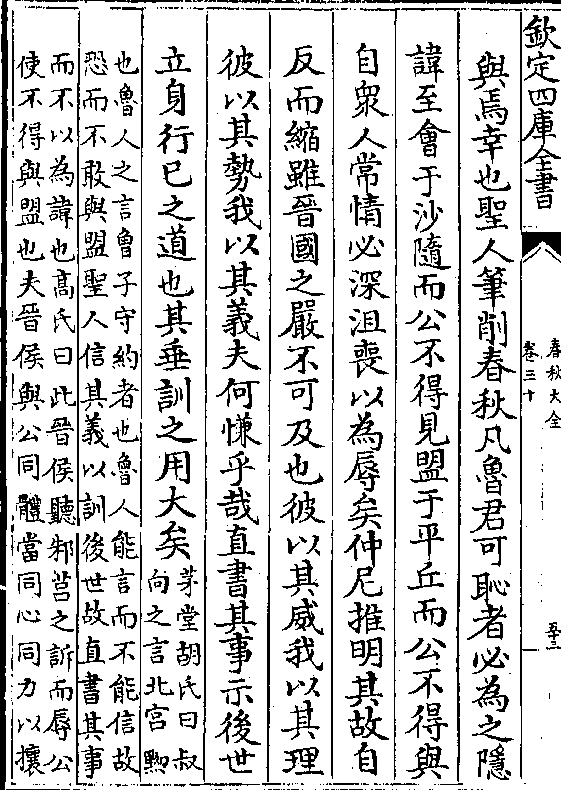 欽定四庫全書
春秋大全
卷三十
至三
與焉幸也聖人筆削春秋凡魯君可恥者必為之隱
諱至會于沙隨而公不得見盟于平丘而公不得與
自衆人常情必深沮喪以為辱矣仲尼推明其故自
反而縮雖晉國之嚴不可及也彼以其威我以其理
彼以其勢我以其義夫何慊乎哉直書其事示後世
立身行已之道也其垂訓之用大矣
茅堂胡氏曰叔
向之言北宮黝
也魯人之言曾子守約者也魯人能言而不能信故
恐而不敢與盟聖人信其義以訓後世故直書其事
而不以為諱也髙氏曰此晉侯聽邾莒之訴而辱公
使不得與盟也夫晉侯與公同體當同心同力以攘